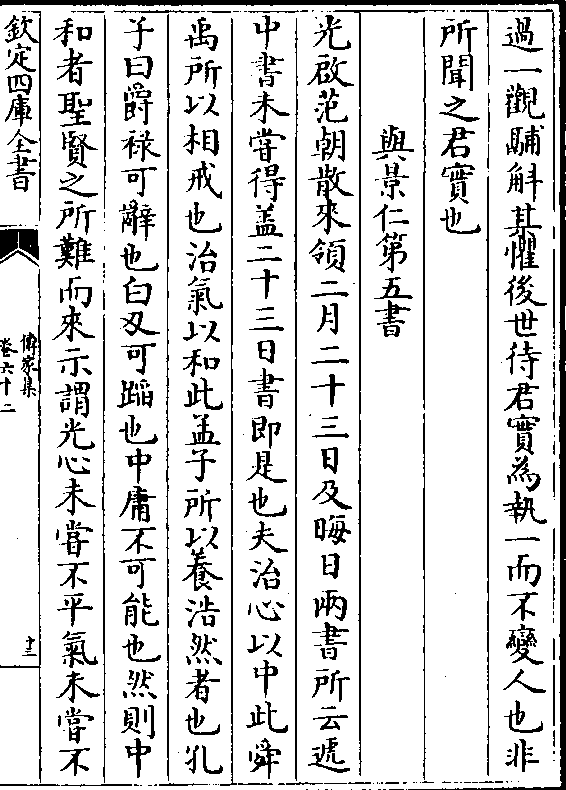 過一觀鬴斛某懼後世待君實為執一而不變人也非
所聞之君實也
與景仁第五書
光啟范朝散來領二月二十三日及晦日兩書所云遞
中書未嘗得盖二十三日書即是也夫治心以中此舜
禹所以相戒也治氣以和此孟子所以養浩然者也孔
子曰爵祿可辭也白刄可蹈也中庸不可能也然則中
和者聖賢之所難而來示謂光心未嘗不平氣未嘗不
欽定四庫全書
傳家集
卷六十二
十三